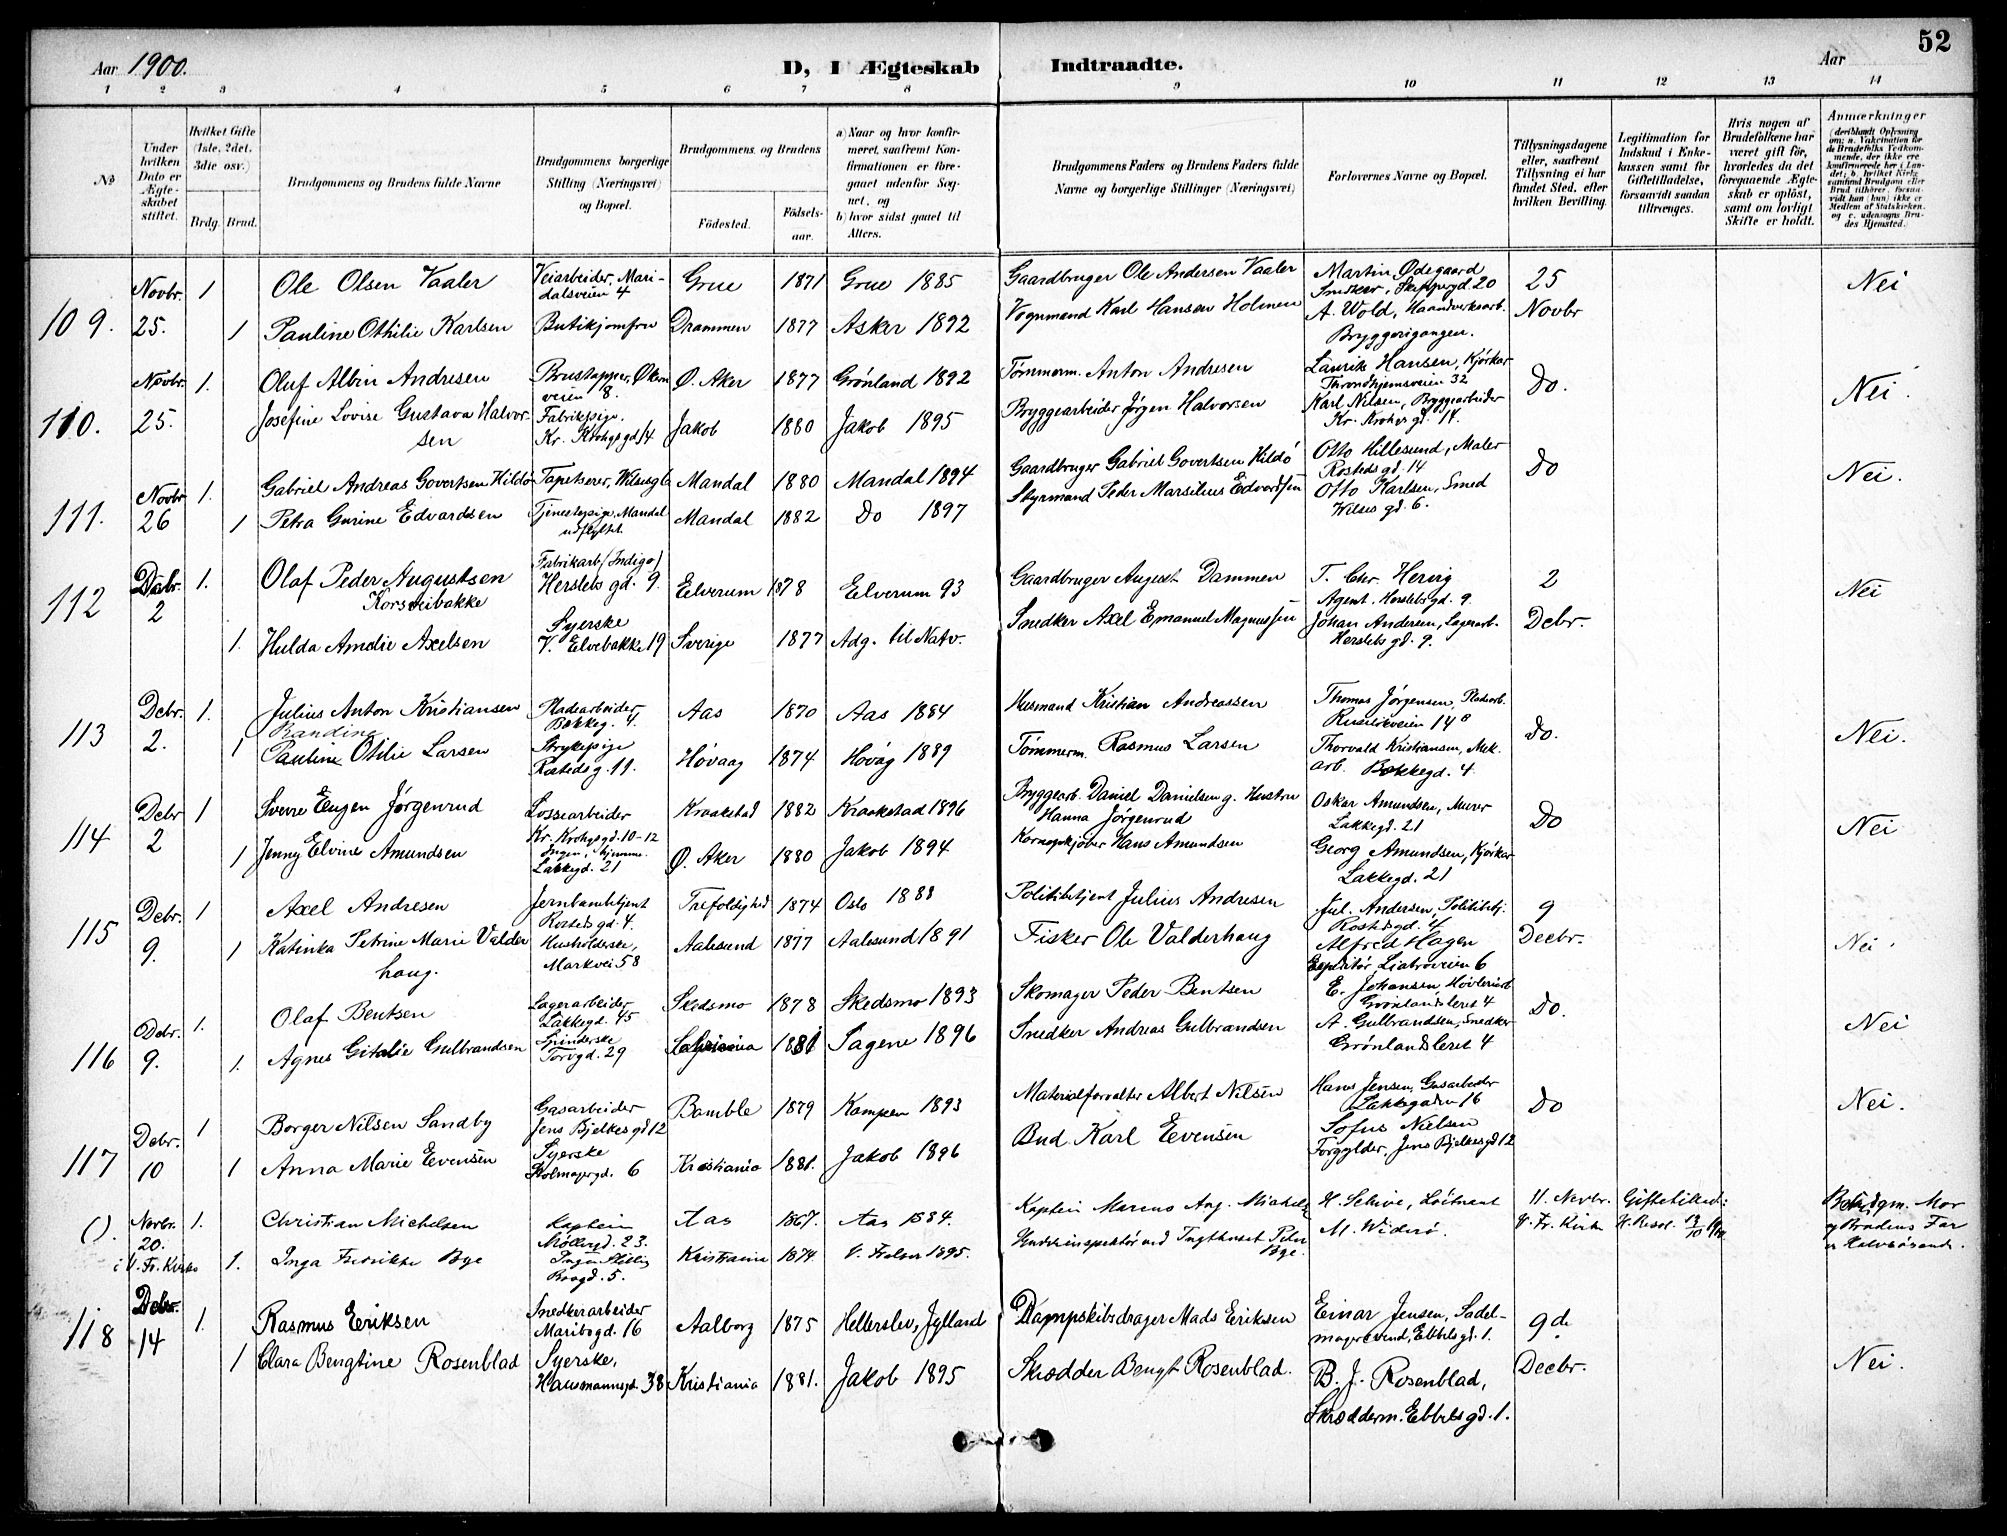 52
Aar 1900.
D, I Ægteskab Indtraadte.
Aar
1 2 3 4 5 6 7 8 9 10 11 12 13 14
№
Under hvilken Dato er Ægteskabet stiftet.
Hvilket Gifte (1ste, 2det. 3die osv.)
Brdg. Brud.
Brudgommens og Brudens fulde Navne
Brudgommens borgerlige Stilling (Næringsvei) og Bopæl.
Brudgommens og Brudens
Fødested. Fødselsaar.
a) Naar og hvor konfirmeret, saafremt Konfirmationen er foregaaet udenfor Sognet, og
b) hvor sidst gaaet til Alters.
Brudgommens Faders og Brudens Faders fulde Navne og borgerlige Stillinger (Næringsvei)
Forlovernes Navne og Bopæl.
Tillysningsdagene eller, saafremt Tillysning ei har fundet Sted, efter hvilken Bevilling.
Legitimation for Indskud i Enkekassen samt for Giftetilladelse, forsaavidt saadan tiltrænges.
Hvis nogen af Brudefolkene har været gift før, hvorledes da det foregaaende Ægteskab er opløst, samt om lovligt Skifte er holdt.
Anmærkninger
109. Novbr. 25. 1 Ole Olsen Vaaler Veiarbeider, Maridalsveien 4 Grue 1871 Grue 1885 Gaardbruger Ole Andersen Vaaler Martin Ødegaard Snedker, 20 25 Novbr Nei
1 Pauline Othilie Karlsen Butikjomfru Drammen 1877 Asker 1892 Vognmand Karl Hansen Holmen A. Wold, Haandverksarb. Bryggerigangen.
110. Novbr. 25. 1. Oluf Albin Andresen Brustapper, Økernveien 8. Ø. Aker 1877 Grønland 1892 Tømmerm. Anton Andresen Laurits Hansen, Kjørkar Throndhjemsveien 32 Do. Nei.
Josefine Lovise Gustava Halvorsen Fabrikpige. Kr. Krohgsgd 14 Jakob 1880 Jakob 1895 Bryggearbeider Jørgen Halvorsen Karl Nilsen, Bryggearbeider Kr. Krohgs gd. 14.
111. Novbr 26 1. Gabriel Andreas Govertsen Hildø Tapetserer, Wilsesg 6 Mandal 1880 Mandal 1894 Gaardbruger Gabriel Govertsen Hildø Otto Hillesund, Maler Rosteds gd. 14 Do Nei.
1 Petra Gurine Edvardsen Tjenestepige, Mandal udflyttet. Mandal 1882 Do 1897 Styrmand Peder Marsilius Edvardsen Otto Karlsen, Smed Wilses gd. 6.
112 Debr. 2 1. Olaf Peder Augustsen Korsveibakke Fabrikarb (Indigo) Herslebs gd. 9. Eelverum 1878 Eelverum 93 Gaardbruger August Dammen T. Chr. Hervig Agent. Herslebs gd. 9. 2 Debr. Nei
1. Hulda Amalie Axelsen Syerske V. Elvebakke 19 Sverige 1877 Adg. til Natv. Snedker Axel Emanuel Magnussen Johan Andersen, Lagerarb. Herslebs gd. 9.
113 Debr. 2. 1. Julius Anton Kristiansen Pladsarbeider Bakkeg. 4. Aas 1870 Aas 1884 Husmand Kristian Andreassen Thomas Jørgensen, Pladsarb. 14 Do. Nei.
Randine
1 Pauline Otilie Larsen Strykepige Rostedsg. 11. Høvaag 1874 Høvåg 1889 Tømmerm. Rasmus Larsen Thorvald Kristiansen, Mek. arb. Bakkegd. 4.
114 Debr 2 1 Sverre Eugen Jørgenrud Lossearbeider Kr. Krohgsgd. 10-12 Kraakstad 1882 Kraakstad 1896 Bryggearb. Daniel Danielsen g. Hustru Hanna Jørgenrud Oskar Amundsen, Murer Lakkegd. 21 Do Nei
1 Jenny Elvine Amundsen Ingen, hjemme. Lakkegd. 21 Ø. Aker 1880 Jakob 1894 Kornopkjøber Hans Amundsen Georg Amundsen, Kjørkar Lakkegd. 21
115 Debr. 9. 1 Axel Andresen Jernbanebetjent Rosteds gd. 4. Trefoldighed 1874 Oslo 1888 Politibetjent Julius Andresen Jul. Andersen, Politibtj. Rostedsgd. 4 9 Decbr. Nei.
1 Katinka Petrine Marie Valderhaug. Husholderske, Markvei 58 Aalesund 1877 Aalesund 1891 Fisker Ole Valderhaug Alfred Hagen Expeditør Liabroveien 6
116 Debr. 9. 1. Olaf Bentsen Lagerarbeider Lakkegd. 45 Skedsmo 1878 Skedsmo 1893 Skomager Peder Bentsen E. Johansen, Høvleriarb Grønlandsleret 4 Do. Nei
1. Agnes Gitalie Gulbrandsen Spinderske Torvgd. 29 1881 Sagene 1896 Snedker Andreas Gulbrandsen A. Gulbrandsen, Snedker Grønlandsleret 4
117 Debr. 10 1 Borger Nilsen Sandby Gasarbeider Jens Bjelkes gd 12 Bamble 1879 Kampen 1893 Materialforvalter Albert Nilsen Hans Jensen, Gasarbeider Lakkegaden 16 Do Nei.
1 Anna Marie Evensen Syerske Holmagergd. 6 Kristiania 1881. Jakob 1896 Bud Karl Evensen Sofus Nielsen Forgylder, Jens Bjelkes gd 12
(). Novbr. 20. i V. Fr. Kirke 1. Christian Michelsen Kaptein Møllergd. 23. Aas 1867. Aas 1884. Kaptein Marcus Aug. Michelsen H. Schive, Løitnant 11. Novbr. V. Fr. Kirke Giftetillad: K. Resol. Brudgm. Mor og Brudens Far er Halvsøsende.
1. Inga Fredrikke Bye Ingen Stilling 5. Kristiania 1874. V. Frelser 1895. Underinspektør ved Tugthuset Peter Bye. M. Widerø.
118 Debr. 14 1. Rasmus Eriksen Snedkerarbeider Maribogd. 16 Aalborg 1875 Hellerslev, Jylland Dampskibsdrager Mads Eriksen Einar Jensen, Sadelmagersvend, Ebbelsgd. 1. 9de Decbr. Nei.
1 Clara Bengtine Rosenblad Syerske, Hausmannsgd. 38 Kristiania 1881. Jakob 1895 Skrædder Bengt Rosenblad. B. J. Rosenblad, Skrædderm. Ebbelsgd. 1.